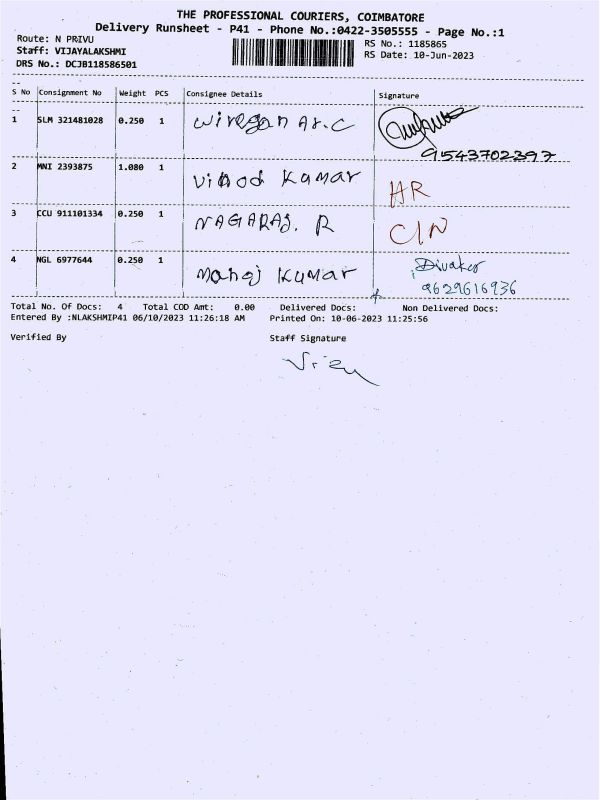 THE PROFESSIONAL COURIERS, COIMBATORE
Delivery Runsheet - P41 - Phone No.:0422-3505555 - Page No.:1
Route: N PRIVU
RS No.: 1185865
Staff: VIJAYALAKSHMI
RS Date: 10-Jun-2023
DRS No.: DCJB118586501
S No Consignment No Weight PCS Consignee Details Signature
1 SLM 321481028 0.250 1
9543702397
2 MNI 2393875 1.080 1 Vinod Kumar HR
3 CCU 911101334 0.250 1 NAGARAJ. R
4 NGL 6977644 0.250 1 Manoj Kumar Divaker
9629616936
Total No. Of Docs: 4 Total COD Amt: 0.00 Delivered Docs: Non Delivered Docs:
Entered By :NLAKSHMIP41 06/10/2023 11:26:18 AM Printed On: 10-06-2023 11:25:56
Verified By Staff Signature